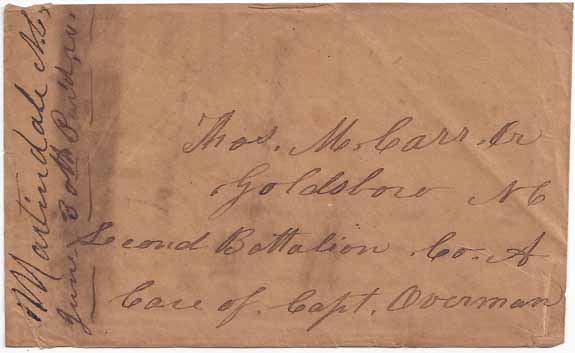 Martindale N.C.
June 30th Paid, 10.
Thos. M. Carr. Jr
Goldsboro NC
Second Battalion Co. A
Care of. Capt. Overman